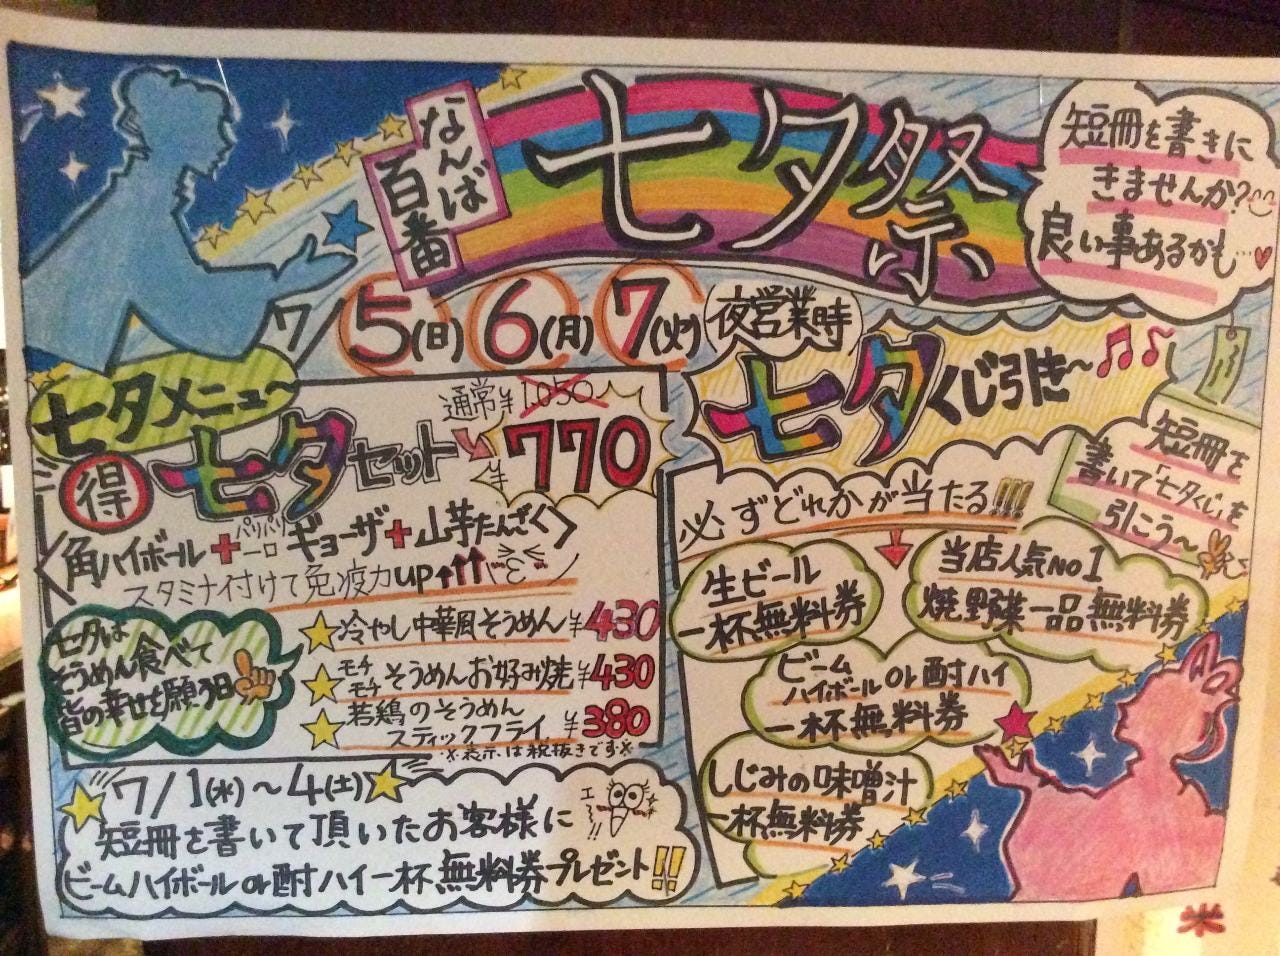 なんば
百番
七夕祭
短冊を書きに
きませんか?
良い事あるかも…
7/5(日)6(月)7(火)夜営業時
七夕メニュー
得 七夕セット
通常¥1,050
¥770
角ハイボール+パリパリ一口ギョーザ+山芋たんざく
スタミナ付けて免疫力up
七夕は
そうめん食べて
皆の幸せを願う日
冷やし中華風そうめん¥430
モチモチそうめんお好み焼¥430
若鶏のそうめん
スティックフライ ¥380
※表示は税抜きです※
7/1(水)~4(土)
短冊を書いて頂いたお客様に
ビームハイボールor酎ハイ一杯無料券プレゼント!!
七夕くじ引き~
短冊を
書いて「七夕くじ」を
引こう~
必ずどれかが当たる!!!!
生ビール
一杯無料券
当店人気No1
焼野菜一品無料券
ビーム
ハイボールor酎ハイ
一杯無料券
しじみの味噌汁
一杯無料券